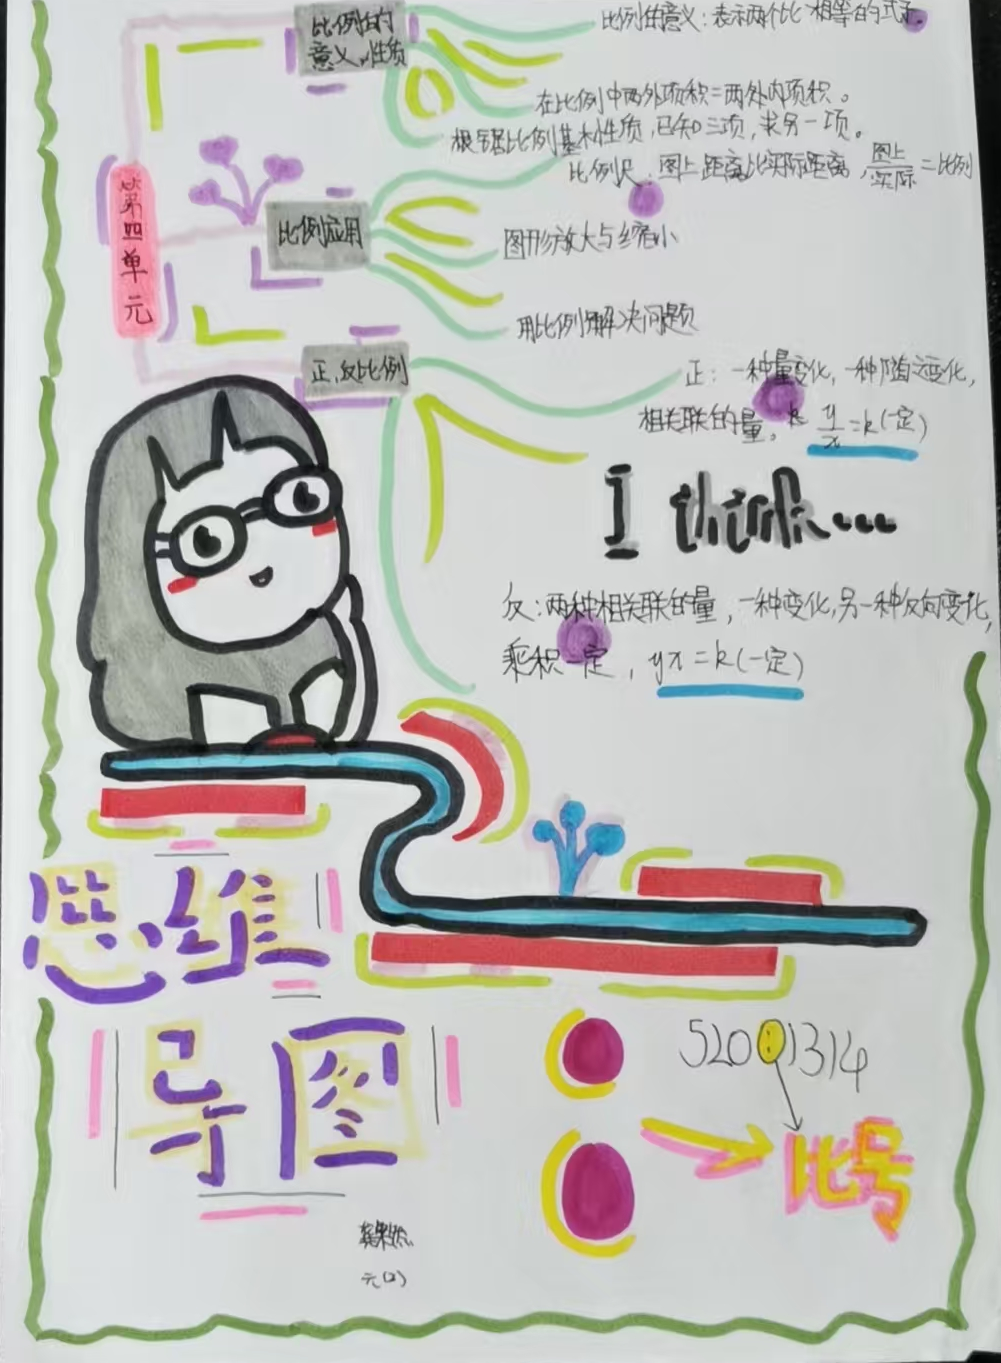 比例的
意义、性质
比例的意义：表示两个比相等的式子。
在比例中两外项积=两外内项积。
根据比例基本性质，已知三项，求另一项。
第四单元
比例应用
比例尺：图上距离比实际距离，图上/实际=比例
图形放大与缩小
用比例解决问题
正、反比例
正：一种量变化，一种随之变化，
相关联的量。y/x=k(一定)
I think...
反：两种相关联的量，一种变化，另一种反向变化，
乘积一定，yx=k(一定)
思维
导图
520:1314
比号